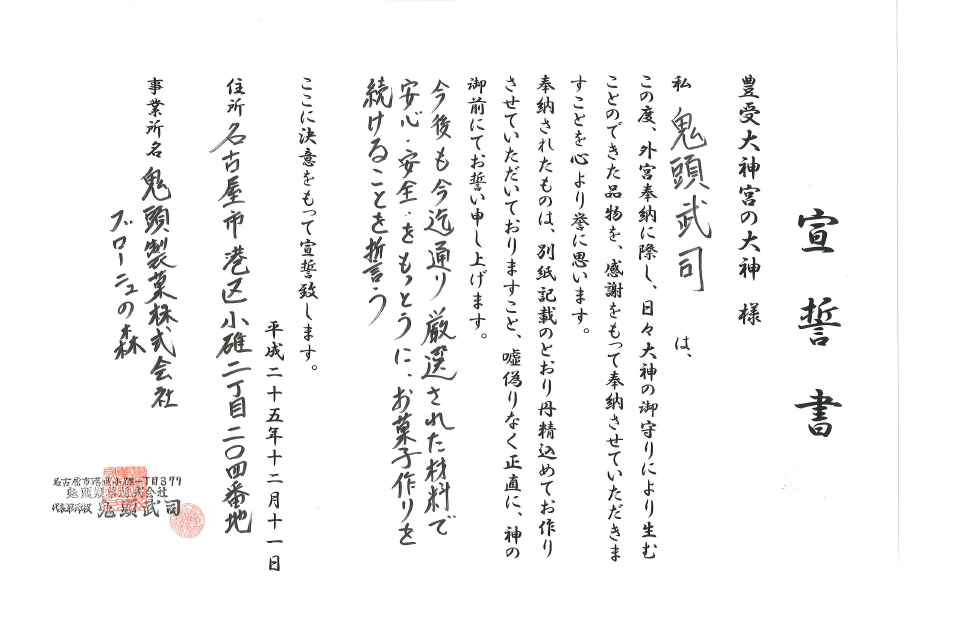 宣誓書
豊受大神宮の大神 様
私 鬼頭武司 は、
この度、外宮奉納に際し、日々大神の御守りにより生む
ことのできた品物を、感謝をもって奉納させていただきま
すことを心より誉に思います。
奉納されたものは、別紙記載のとおり丹精込めてお作り
させていただいておりますこと、嘘偽りなく正直に、神の
御前にてお誓い申し上げます。
今後も今迄通り厳選された材料で
安心・安全・をもっとうに、お菓子作りを
続けることを誓う
ここに決意をもって宣誓致します。
平成二十五年十二月十一日
住所 名古屋市港区小碓二丁目二〇四番地
事業所名 鬼頭製菓株式会社
ブローニュの森
名古屋市港区小碓一丁目377
鬼頭製菓株式会社
代表取締役 鬼頭武司